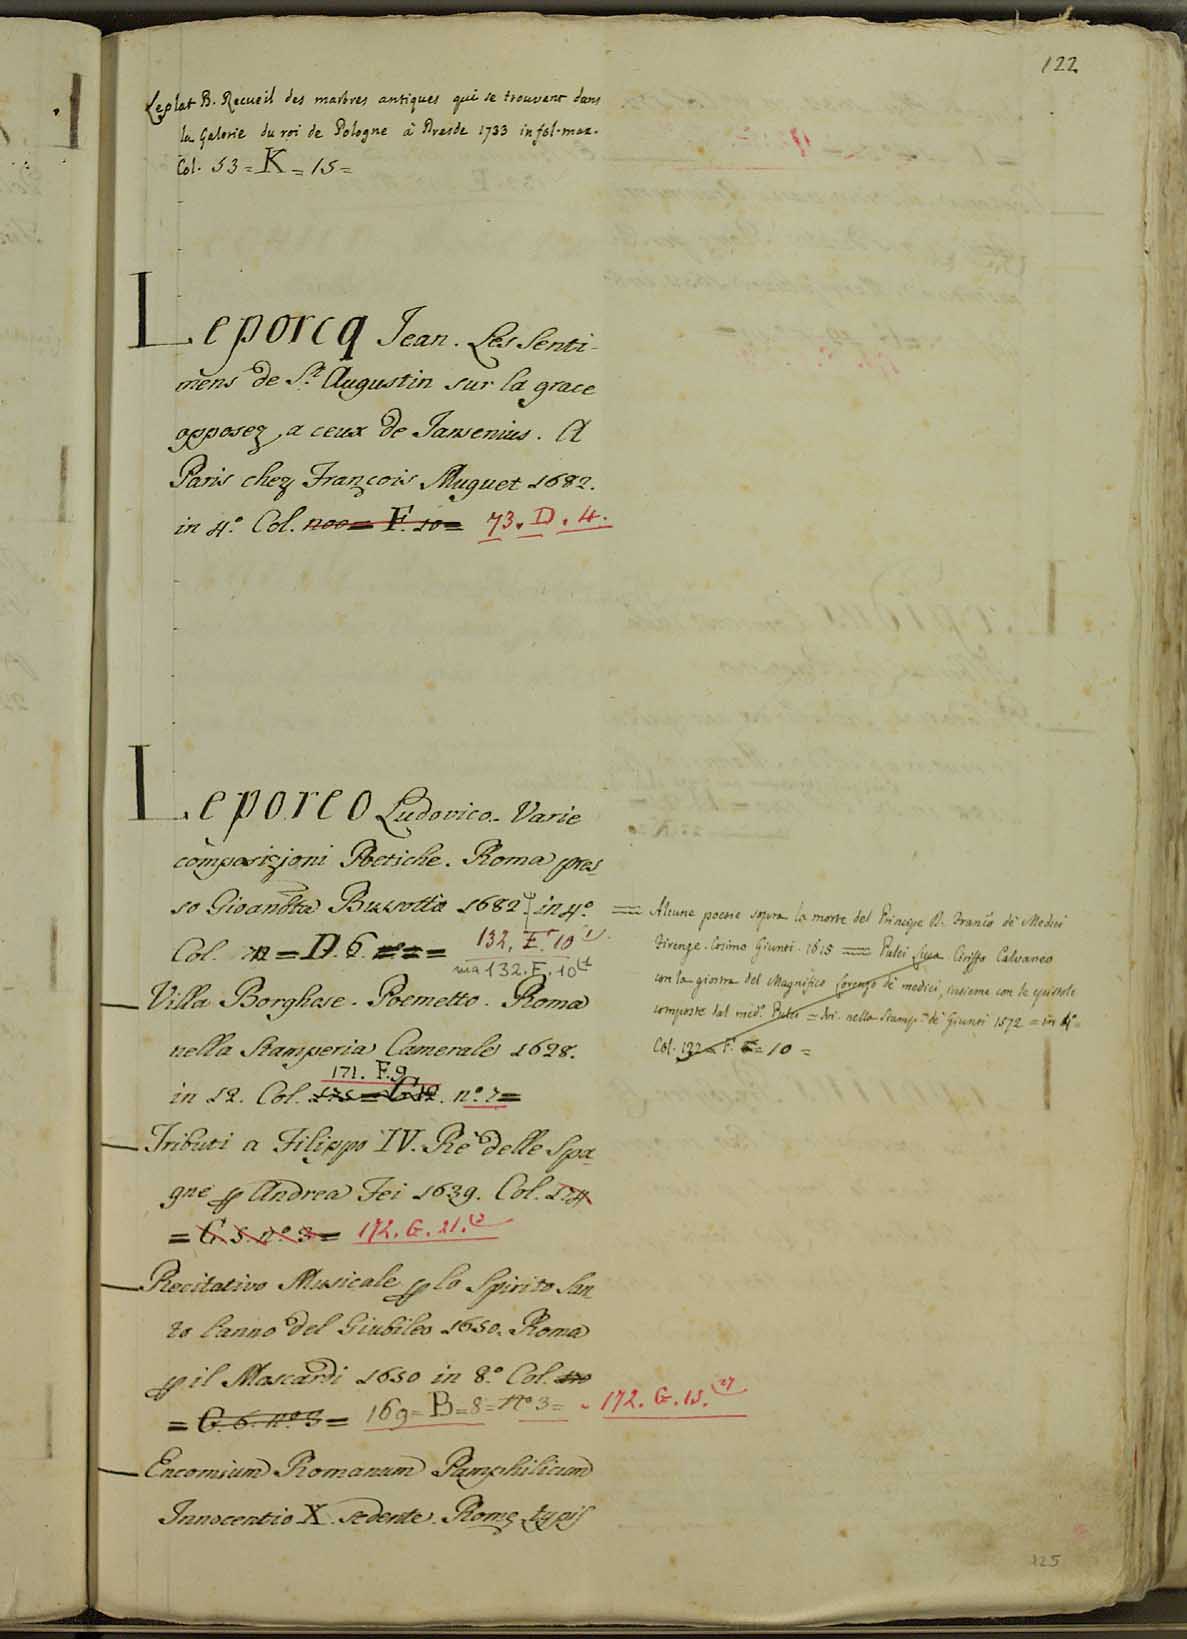 122
Leplat B. Recueil des marbres antiques qui se trouvent dans
la Galerie du roi de Pologne à Dresde 1733 in fol. max.
Col. 53 = K = 15 =
Leporcq Jean. Les Senti-
mens de S.t Augustin sur la grace
opposez a ceux de Jansenius. A
Paris chez François Muguet 1682.
in 4.° Col. 100 = F. 10 = 73. D. 4.
Leporeo Ludovico. Varie
composizioni Poetiche. Roma pres-
so Gioanotta Bussotti 1682 in 4.°
Col. = D. 6. = 132. F. 10 (1
132. F. 10 (1
Villa Borghese. Poemetto. Roma
nella Stamperia Camerale 1628.
171. F. 9
in 12. Col. 175 = G 12. n.° 7 =
Tributi a Filippo IV. Re delle Spa-
gne p Andrea Fei 1639. Col. 174
= G. 5. n.° 3 = 172. G. 21. (2
Recitativo Musicale p lo Spirito San-
to l'anno del Giubileo 1650. Roma
p il Mascardi 1650 in 8.° Col. 170
= G. 6. n.° 3 = 169 = B = 8 = N° 3 = 172. G. 15. (27
Encomium Romanum Pamphilicum
Innocentio X. sedente. Rome typis
= Alcune poesie sopra la morte del Principe D. Franc.o de Medici
Firenze. Cosimo Giunti. 1615 = Pulci Luca Ciriffo Calvaneo
con la giostra del Magnifico Lorenzo de medici, insieme con le epistole
composte dal med.o Pulci = ivi. nella Stamp.a de Giunti 1572 = in 4° =
Col. 132 = F. = 10 =
125